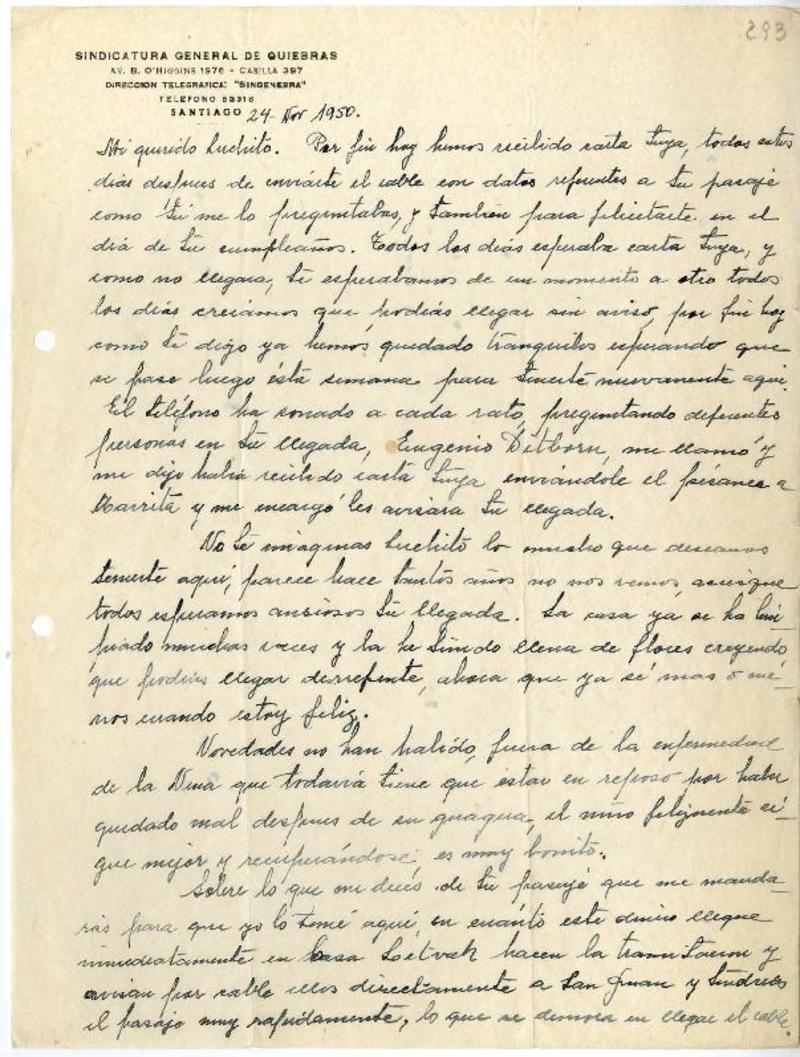 293
SINDICATURA GENERAL DE QUIEBRAS
AV. B. O'HIGGINS 1976 - CASILLA 397
DIRECCION TELEGRAFICA: "SINGENEBRA"
TELEFONO 83318
SANTIAGO 24 - Nov 1950.
Mi querido Luchito. Por fin hoy hemos recibido carta tuya, todos estos
días despues de enviarte el cable con datos referentes a tu pasaje
como tú me lo preguntabas, y tambien para felicitarte en el
día de tu cumpleaños. Todos los días esperaba carta tuya, y
como no llegara, te esperabamos de un momento a otro todos
los días creiamos que podías llegar sin aviso, por fin hoy
como te digo ya hemos quedado tranquilos esperando que
se pase luego ésta semana para tenerte nuevamente aqui.
El teléfono ha sonado a cada rato, preguntando diferentes
personas en tu llegada, Eugenio Ditborn, me llamó y
me dijo había recibido carta tuya enviándole el pésame a
y me encargó les avisara tu llegada.
No te imaginas Luchito lo mucho que deseamos
tenerte aquí, parece hace tantos años no nos vemos, asi es que
todos esperamos ansiosos tu llegada. La casa ya se ha lim-
piado muchas veces y la he tenido llena de flores creyendo
que podías llegar derrepente, ahora que ya sé mas o me-
nos cuando estoy feliz.
Novedades no han habido, fuera de la enfermedad
de la Nena que todavía tiene que estar en reposo por haber
quedado mal despues de su guagua, el niño felizmente si-
gue mejor y recuperándose, es muy bonito.
Sobre lo que me decís de tu pasaje que me manda-
rás para que yo lo tome aquí, en cuánto este dinero llegue
inmediatamente en Casa hacen la tramitacion y
avisan por cable ellos directamente a San Juan y tendrás
el pasaje muy rapidamente, lo que se demora en llegar el cable.